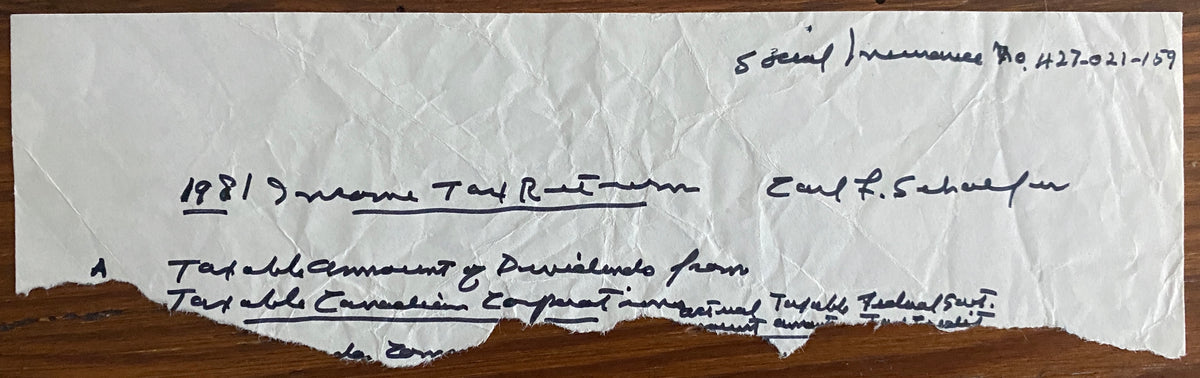 Social Insurance No. 427-021-159
1981 Income Tax Return Carl F. Schaefer
A Taxable Amount of Dividends from
Taxable Canadian Corporations Actual Taxable Federal Govt.
amount amount Tax Credit